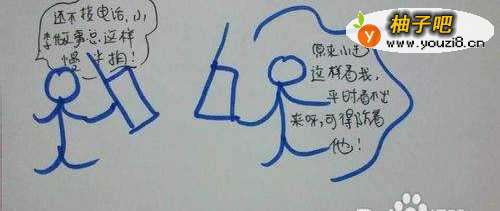 还不接电话,小
李做事总这样
慢半拍!
原来小赵
这样看我,
平时看不出
来呀,可得防着
他!
柚子吧
www.youzi8.cn